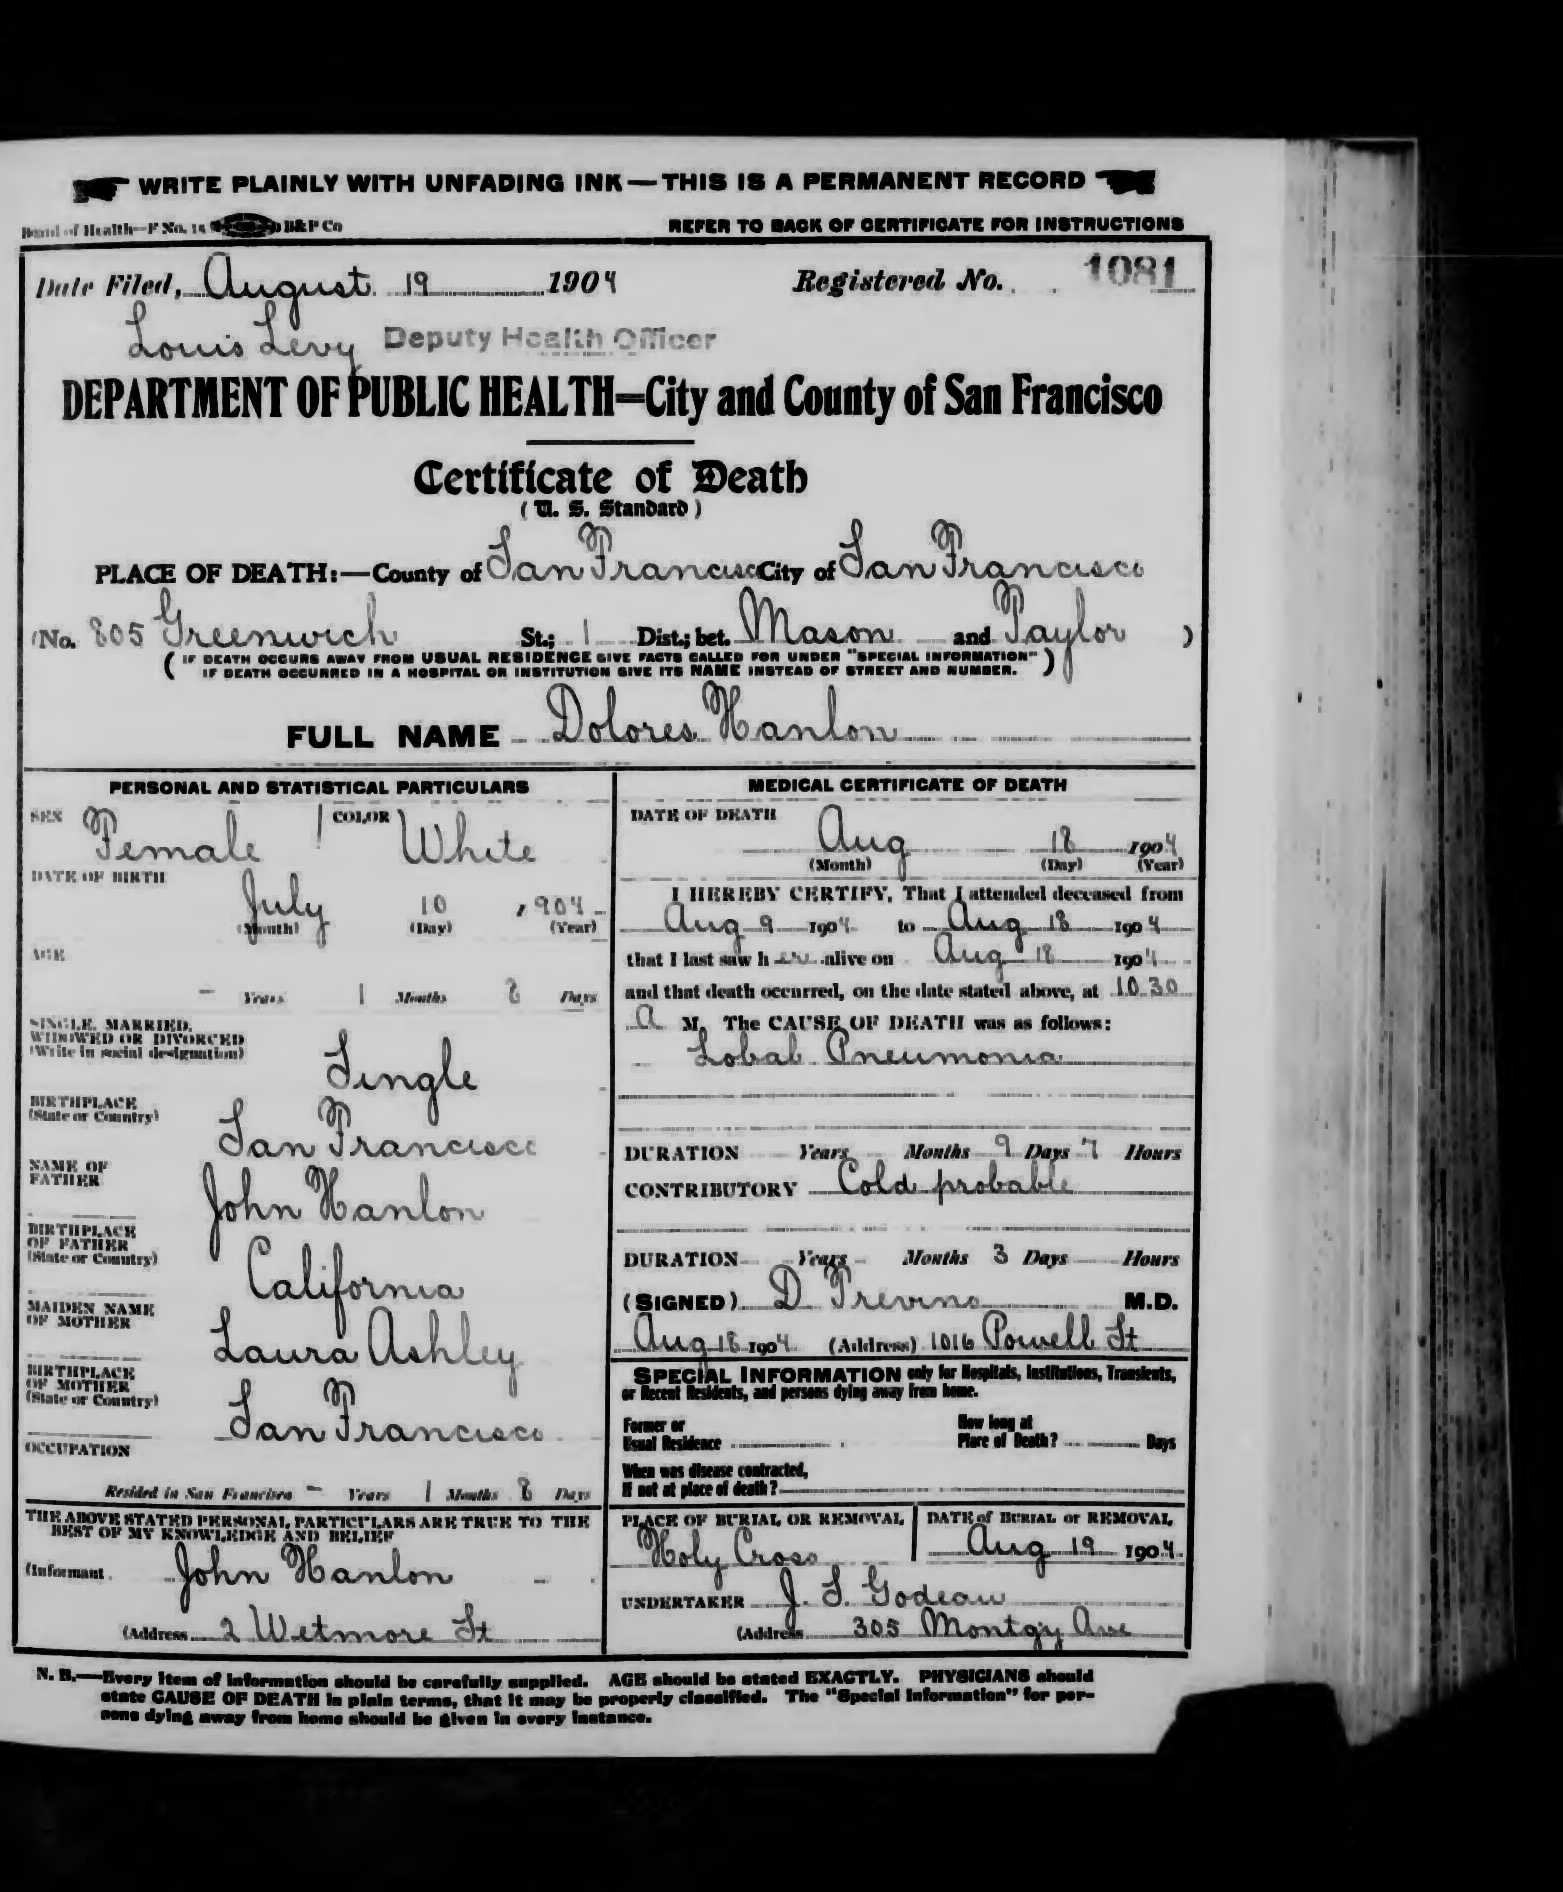 WRITE PLAINLY WITH UNFADING INK—THIS IS A PERMANENT RECORD
Board of Health—F No. 14 B&P Co
REFER TO BACK OF CERTIFICATE FOR INSTRUCTIONS
Date Filed, August 19 1904 Registered No. 1081
Louis Levy Deputy Health Officer
DEPARTMENT OF PUBLIC HEALTH—City and County of San Francisco
Certificate of Death
(U. S. Standard)
PLACE OF DEATH:—County of San Francisco City of San Francisco
(No. 805 Greenwich St.; 1 Dist.; bet. Mason and Taylor )
( IF DEATH OCCURS AWAY FROM USUAL RESIDENCE GIVE FACTS CALLED FOR UNDER "SPECIAL INFORMATION" )
IF DEATH OCCURRED IN A HOSPITAL OR INSTITUTION GIVE ITS NAME INSTEAD OF STREET AND NUMBER.
FULL NAME Dolores Hanlon
PERSONAL AND STATISTICAL PARTICULARS
SEX Female COLOR White
DATE OF BIRTH
July 10 1904
(Month) (Day) (Year)
AGE
– Years 1 Months 8 Days
SINGLE, MARRIED,
WIDOWED OR DIVORCED
(Write in social designation)
Single
BIRTHPLACE
(State or Country)
San Francisco
NAME OF
FATHER
John Hanlon
BIRTHPLACE
OF FATHER
(State or Country)
California
MAIDEN NAME
OF MOTHER
Laura Ashley
BIRTHPLACE
OF MOTHER
(State or Country)
San Francisco
OCCUPATION
Resided in San Francisco – Years 1 Months 8 Days
THE ABOVE STATED PERSONAL PARTICULARS ARE TRUE TO THE
BEST OF MY KNOWLEDGE AND BELIEF
(Informant John Hanlon
(Address 2 Wetmore St
MEDICAL CERTIFICATE OF DEATH
DATE OF DEATH
Aug 18 1904
(Month) (Day) (Year)
I HEREBY CERTIFY, That I attended deceased from
Aug 9 1904 to Aug 18 1904
that I last saw her alive on Aug 18 1904
and that death occurred, on the date stated above, at 10.30
A M. The CAUSE OF DEATH was as follows:
Lobal Pneumonia
DURATION Years Months 9 Days 7 Hours
CONTRIBUTORY Cold probable
DURATION Years Months 3 Days Hours
(SIGNED) D Trevino M.D.
Aug 18 1904 (Address) 1016 Powell St
SPECIAL INFORMATION only for Hospitals, Institutions, Transients,
or Recent Residents, and persons dying away from home.
Former or
Usual Residence
How long at
Place of Death? Days
When was disease contracted,
If not at place of death?
PLACE OF BURIAL OR REMOVAL
Holy Cross
DATE of BURIAL or REMOVAL
Aug 19 1904
UNDERTAKER J. S. Godeau
(Address 305 Montg'y Ave
N. B.—Every item of information should be carefully supplied. AGE should be stated EXACTLY. PHYSICIANS should
state CAUSE OF DEATH in plain terms, that it may be properly classified. The "Special Information" for per-
sons dying away from home should be given in every instance.